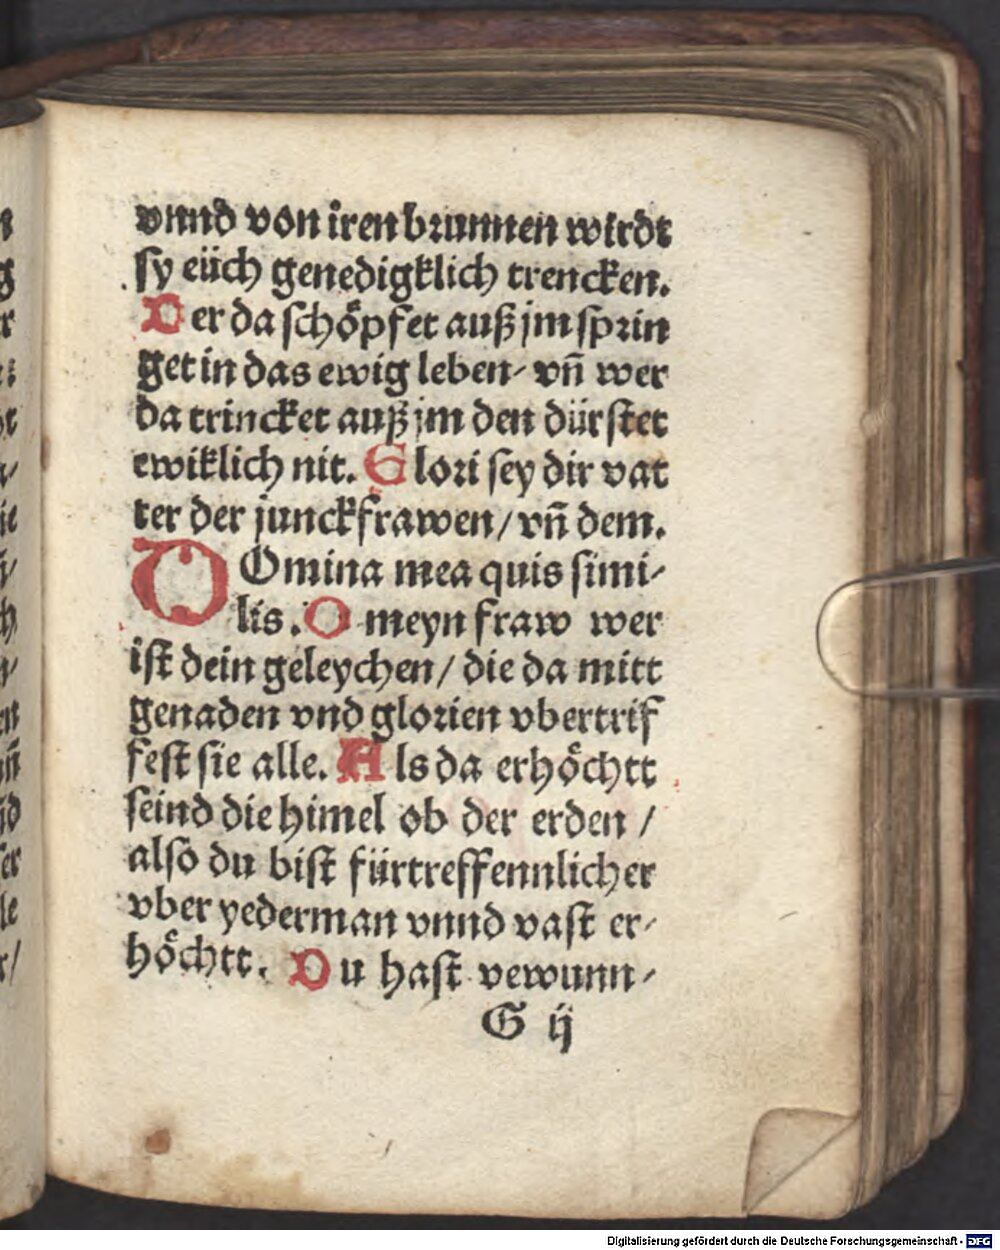 vnnd von iren brunnen wirdt
sy eüch genedigklich trencken.
Der da schöpfet auß jm sprin
get in das ewig leben/ vn̄ wer
da trincket auß jm den dürstet
ewiklich nit. Glori sey dir vat
ter der junckfrawen/ vn̄ dem.
DOmina mea quis simi/
lis. O meyn fraw wer
ist dein geleychen/ die da mitt
genaden vnd glorien vbertrif
fest sie alle. Als da erhöchtt
seind die himel ob der erden /
also du bist fürtreffennlicher
vber yederman vnnd vast er/
höchtt. Du hast vewunn/
G ij
Digitalisierung gefördert durch die Deutsche Forschungsgemeinschaft - DFG